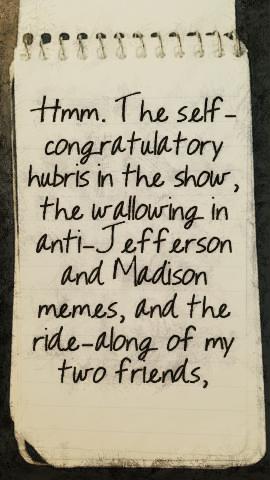 Hmm. The self-
congratulatory
hubris in the show,
the wallowing in
anti-Jefferson
and Madison
memes, and the
ride-along of my
two friends,